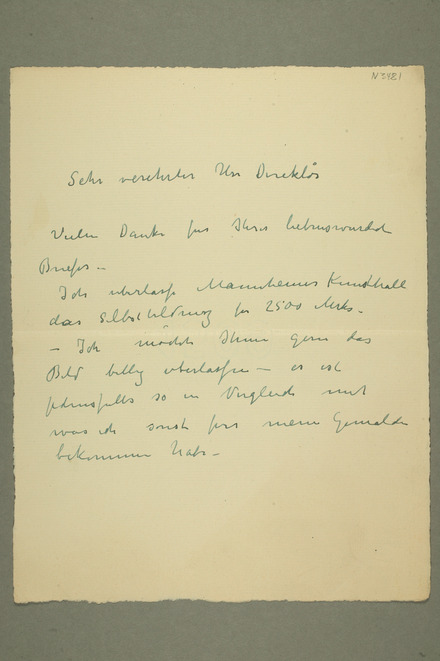 N 3481
Sehr verehrter Herr Direktor
Vielen Danke fur Ihres liebenswurdch
Briefes –
Ich uberlasse Mannheimer Kunsthalle
das Selbstbildnis fur 2500 Mark –
– Ich mochte Ihnen gern das
Bild billig uberlassen – es ist
jedenfalls so in Vergleich mit
was ich sonst fur meine Gemalde
bekommen habe –